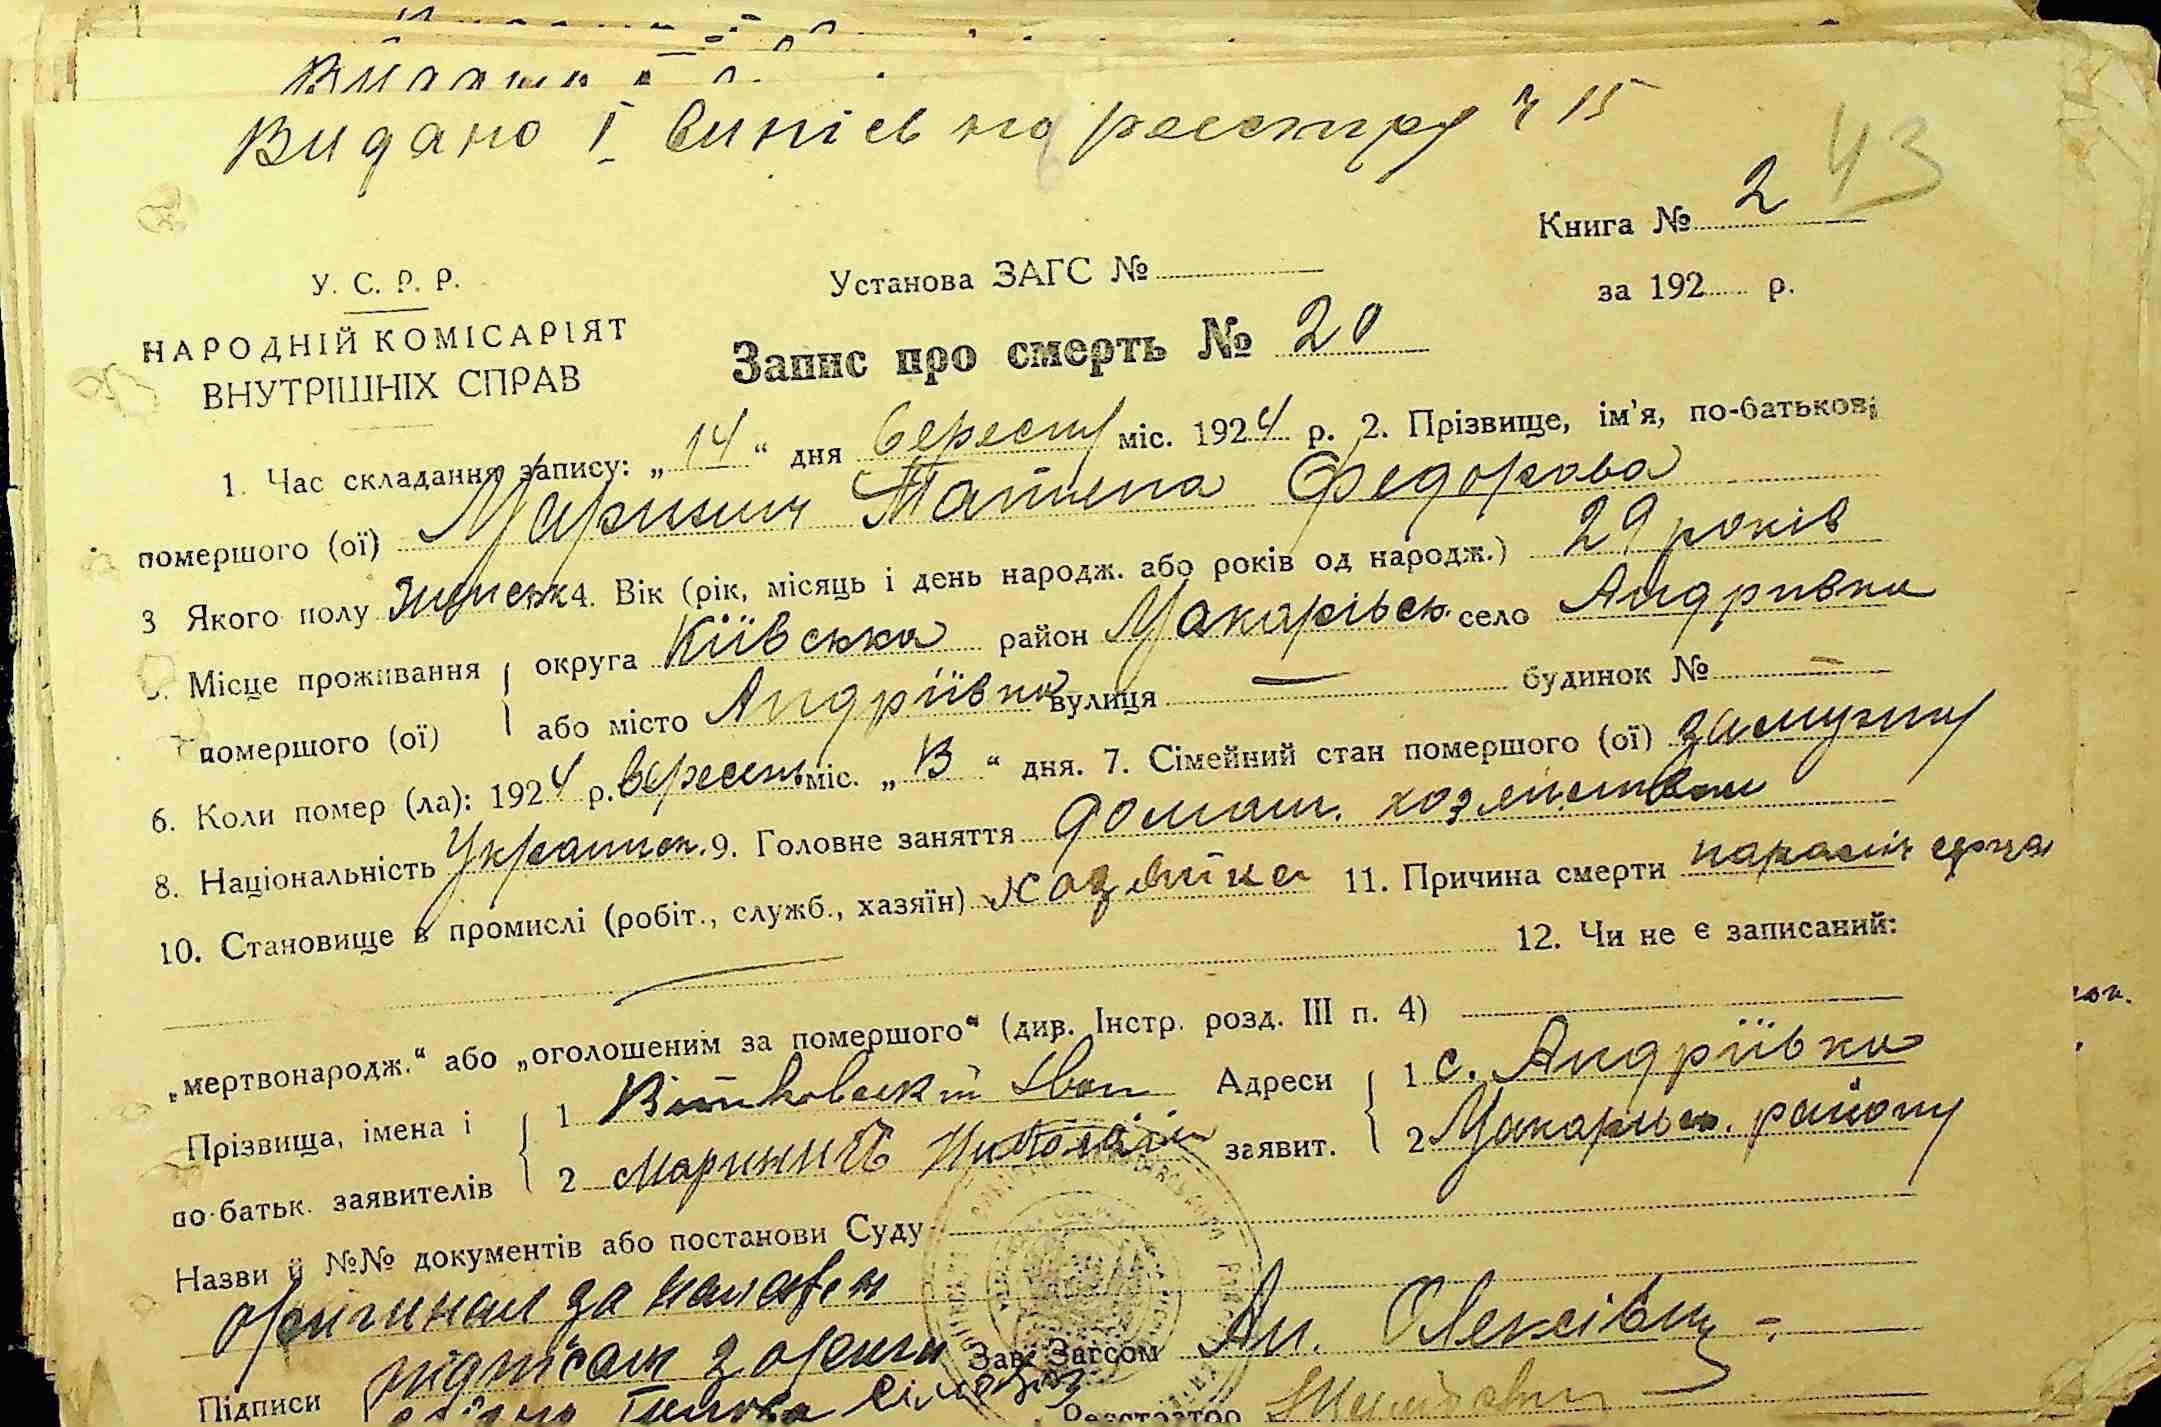 Видано І Випісь на реєстру ч 15
43
Книга № 2
У. С. Р. Р.
Установа ЗАГС №
за 192 р.
НАРОДНІЙ КОМІСАРІЯТ
ВНУТРІШНІХ СПРАВ
Запис про смерть № 20
1. Час складання запису: „ 14 “ дня вересня міс. 1924 р. 2. Прізвище, ім'я, по-батькові
помершого (ої) Маринич Татьяна Федорова
3 Якого полу женськ 4. Вік (рік, місяць і день народж. або років од народж.) 29 років
Місце проживання округа Київська район Макарівськ. село Андривка
помершого (ої) або місто Андріївка вулиця — будинок № —
6. Коли помер (ла): 1924 р. вересень міс. „ 13 “ дня. 7. Сімейний стан помершого (ої) замужну
8. Національність Украинск. 9. Головне заняття домаш. хозяйством
10. Становище в промислі (робіт., служб., хазяїн) хозяйка 11. Причина смерти параліч серця
12. Чи не є записаний:
„мертвонародж.“ або „оголошеним за помершого“ (див. Інстр. розд. III п. 4)
Прізвища, імена і 1 Вітковский Іван Адреси 1 с. Андріївка
по-батьк. заявителів 2 Маринич Николай заявит. 2 Макарівск. району
Назви й №№ документів або постанови Суду
оригинал за
підписам з
Зав. Загсом Ан. Олексівец
Підписи
Реєстратор